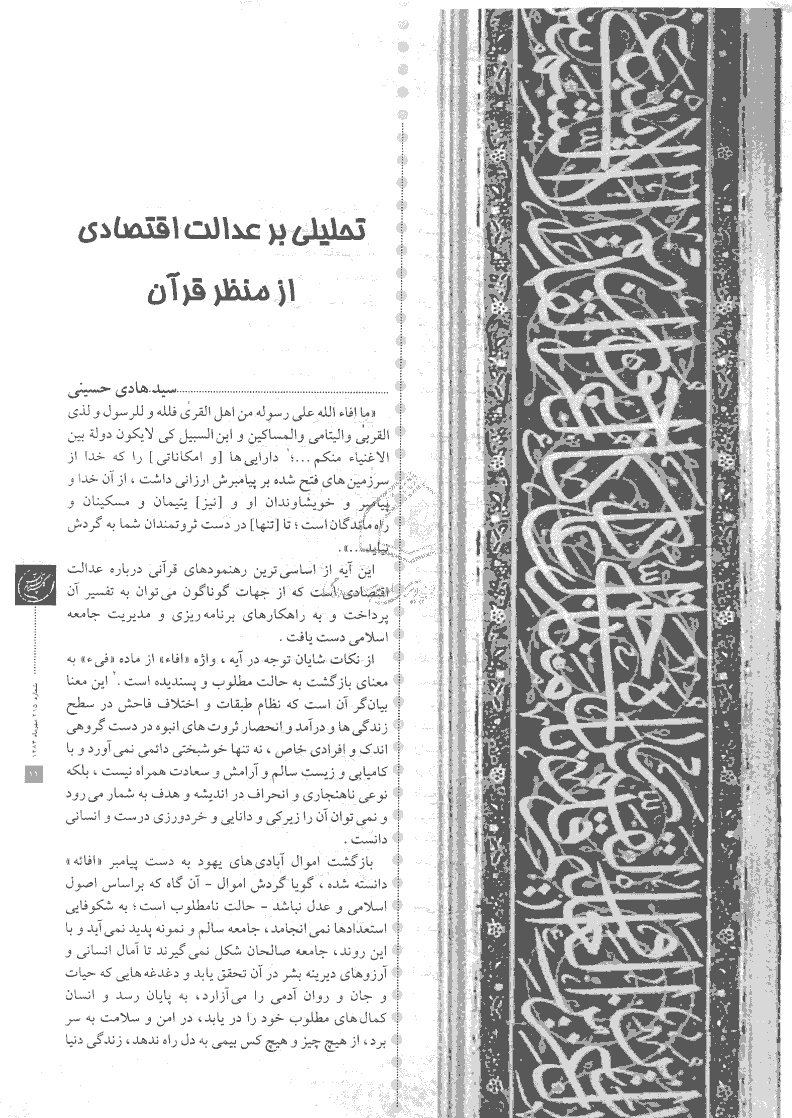 تحلیلی بر عدالت اقتصادی
از منظر قرآن
سید هادی حسینی
«ما افاء الله علی رسوله من اهل القریٰ فلله و للرسول و لذی
القربیٰ والیتامی والمساکین و ابن السبیل کی لایکون دولة بین
الاغنیاء منکم ...؛۱ دارایی‌ها [و امکاناتی] را که خدا از
سرزمین‌های فتح شده بر پیامبرش ارزانی داشت، از آن خدا و
پیامبر و خویشاوندان او و [نیز] یتیمان و مسکینان و
راه‌ماندگان است؛ تا [تنها] در دست ثروتمندان شما به گردش
نیاید...».
این آیه از اساسی‌ترین رهنمودهای قرآنی درباره عدالت
اقتصادی است که از جهات گوناگون می‌توان به تفسیر آن
پرداخت و به راهکارهای برنامه‌ریزی و مدیریت جامعه
اسلامی دست یافت.
از نکات شایان توجه در آیه، واژه «افاء» از ماده «فیء» به
معنای بازگشت به حالت مطلوب و پسندیده است.۲ این معنا
بیان‌گر آن است که نظام طبقات و اختلاف فاحش در سطح
زندگی‌ها و درآمد و انحصار ثروت‌های انبوه در دست گروهی
اندک و افرادی خاص، نه تنها خوشبختی دائمی نمی‌آورد و با
کامیابی و زیست سالم و آرامش و سعادت همراه نیست، بلکه
نوعی ناهنجاری و انحراف در اندیشه و هدف به شمار می‌رود
و نمی‌توان آن را زیرکی و دانایی و خردورزی درست و انسانی
دانست.
بازگشت اموال آبادی‌های یهود به دست پیامبر «افائه»
دانسته شده، گویا گردش اموال - آن گاه که براساس اصول
اسلامی و عدل نباشد - حالت نامطلوب است؛ به شکوفایی
استعدادها نمی‌انجامد، جامعه سالم و نمونه پدید نمی‌آید و با
این روند، جامعه صالحان شکل نمی‌گیرند تا آمال انسانی و
آرزوهای دیرینه بشر در آن تحقق یابد و دغدغه‌هایی که حیات
و جان و روان آدمی را می‌آزارد، به پایان رسد و انسان
کمال‌های مطلوب خود را در یابد، در امن و سلامت به سر
برد، از هیچ چیز و هیچ کس بیمی به دل راه ندهد، زندگی دنیا
شماره ۲۱۵ مهرماه ۱۳۸۳
۱۱